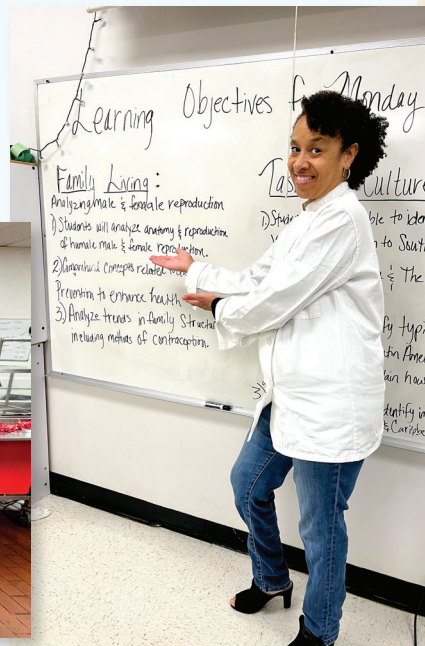 Learning Objectives f Monday
Family Living:
Analyzing male & female reproduction
1) Students will analyze anatomy & reproduction
of humale male & female reproduction.
2) Comprehend concepts related
Prevention to enhance health
3) Analyze trends in family Structu
including methods of contraception.
Tas Culture
1) Stude ble to iden
to South
& The
fy typi
tin Ameri
ain how
3)
dentify im
& Caribbe